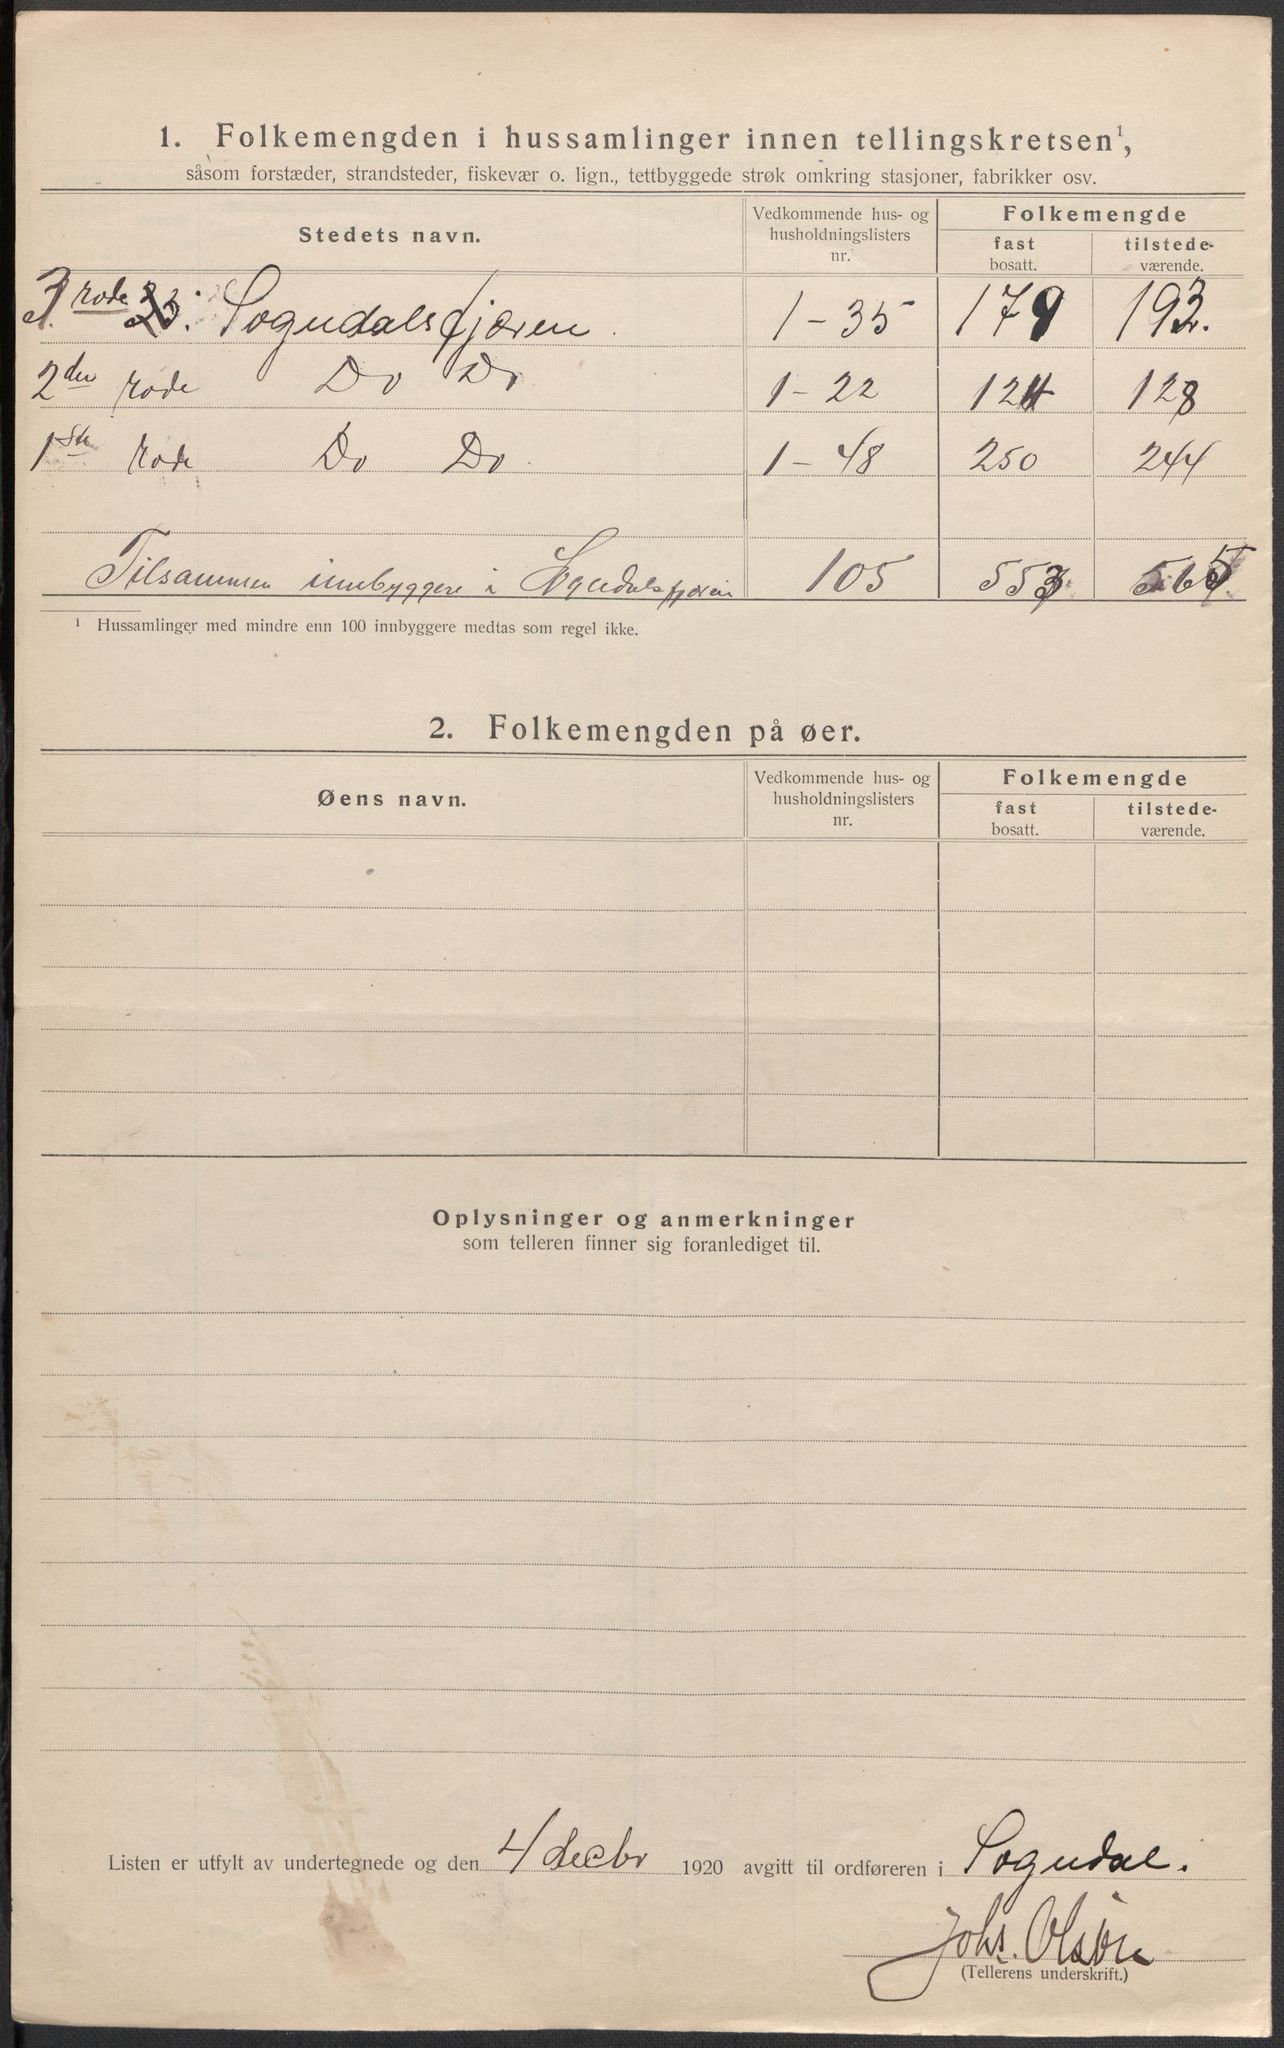 1. Folkemengden i hussamlinger innen tellingskretsen¹,
såsom forstæder, strandsteder, fiskevær o. lign., tettbyggede strøk omkring stasjoner, fabrikker osv.
Stedets navn. Vedkommende hus- og husholdningslisters nr. Folkemengde
fast bosatt. tilstede-værende.
3 rode Sogndalsfjæren. 1-35 179 193.
2den rode Do Do 1-22 124 128
1ste rode Do Do 1-48 250 244
Tilsammen innbyggere i Sogndalsfjæren 105 553 565
¹ Hussamlinger med mindre enn 100 innbyggere medtas som regel ikke.
2. Folkemengden på øer.
Øens navn. Vedkommende hus- og husholdningslisters nr. Folkemengde
fast bosatt. tilstede-værende.
Oplysninger og anmerkninger
som telleren finner sig foranlediget til.
Listen er utfylt av undertegnede og den 4/decbr 1920 avgitt til ordføreren i Sogndal.
Johs. Olsen
(Tellerens underskrift.)